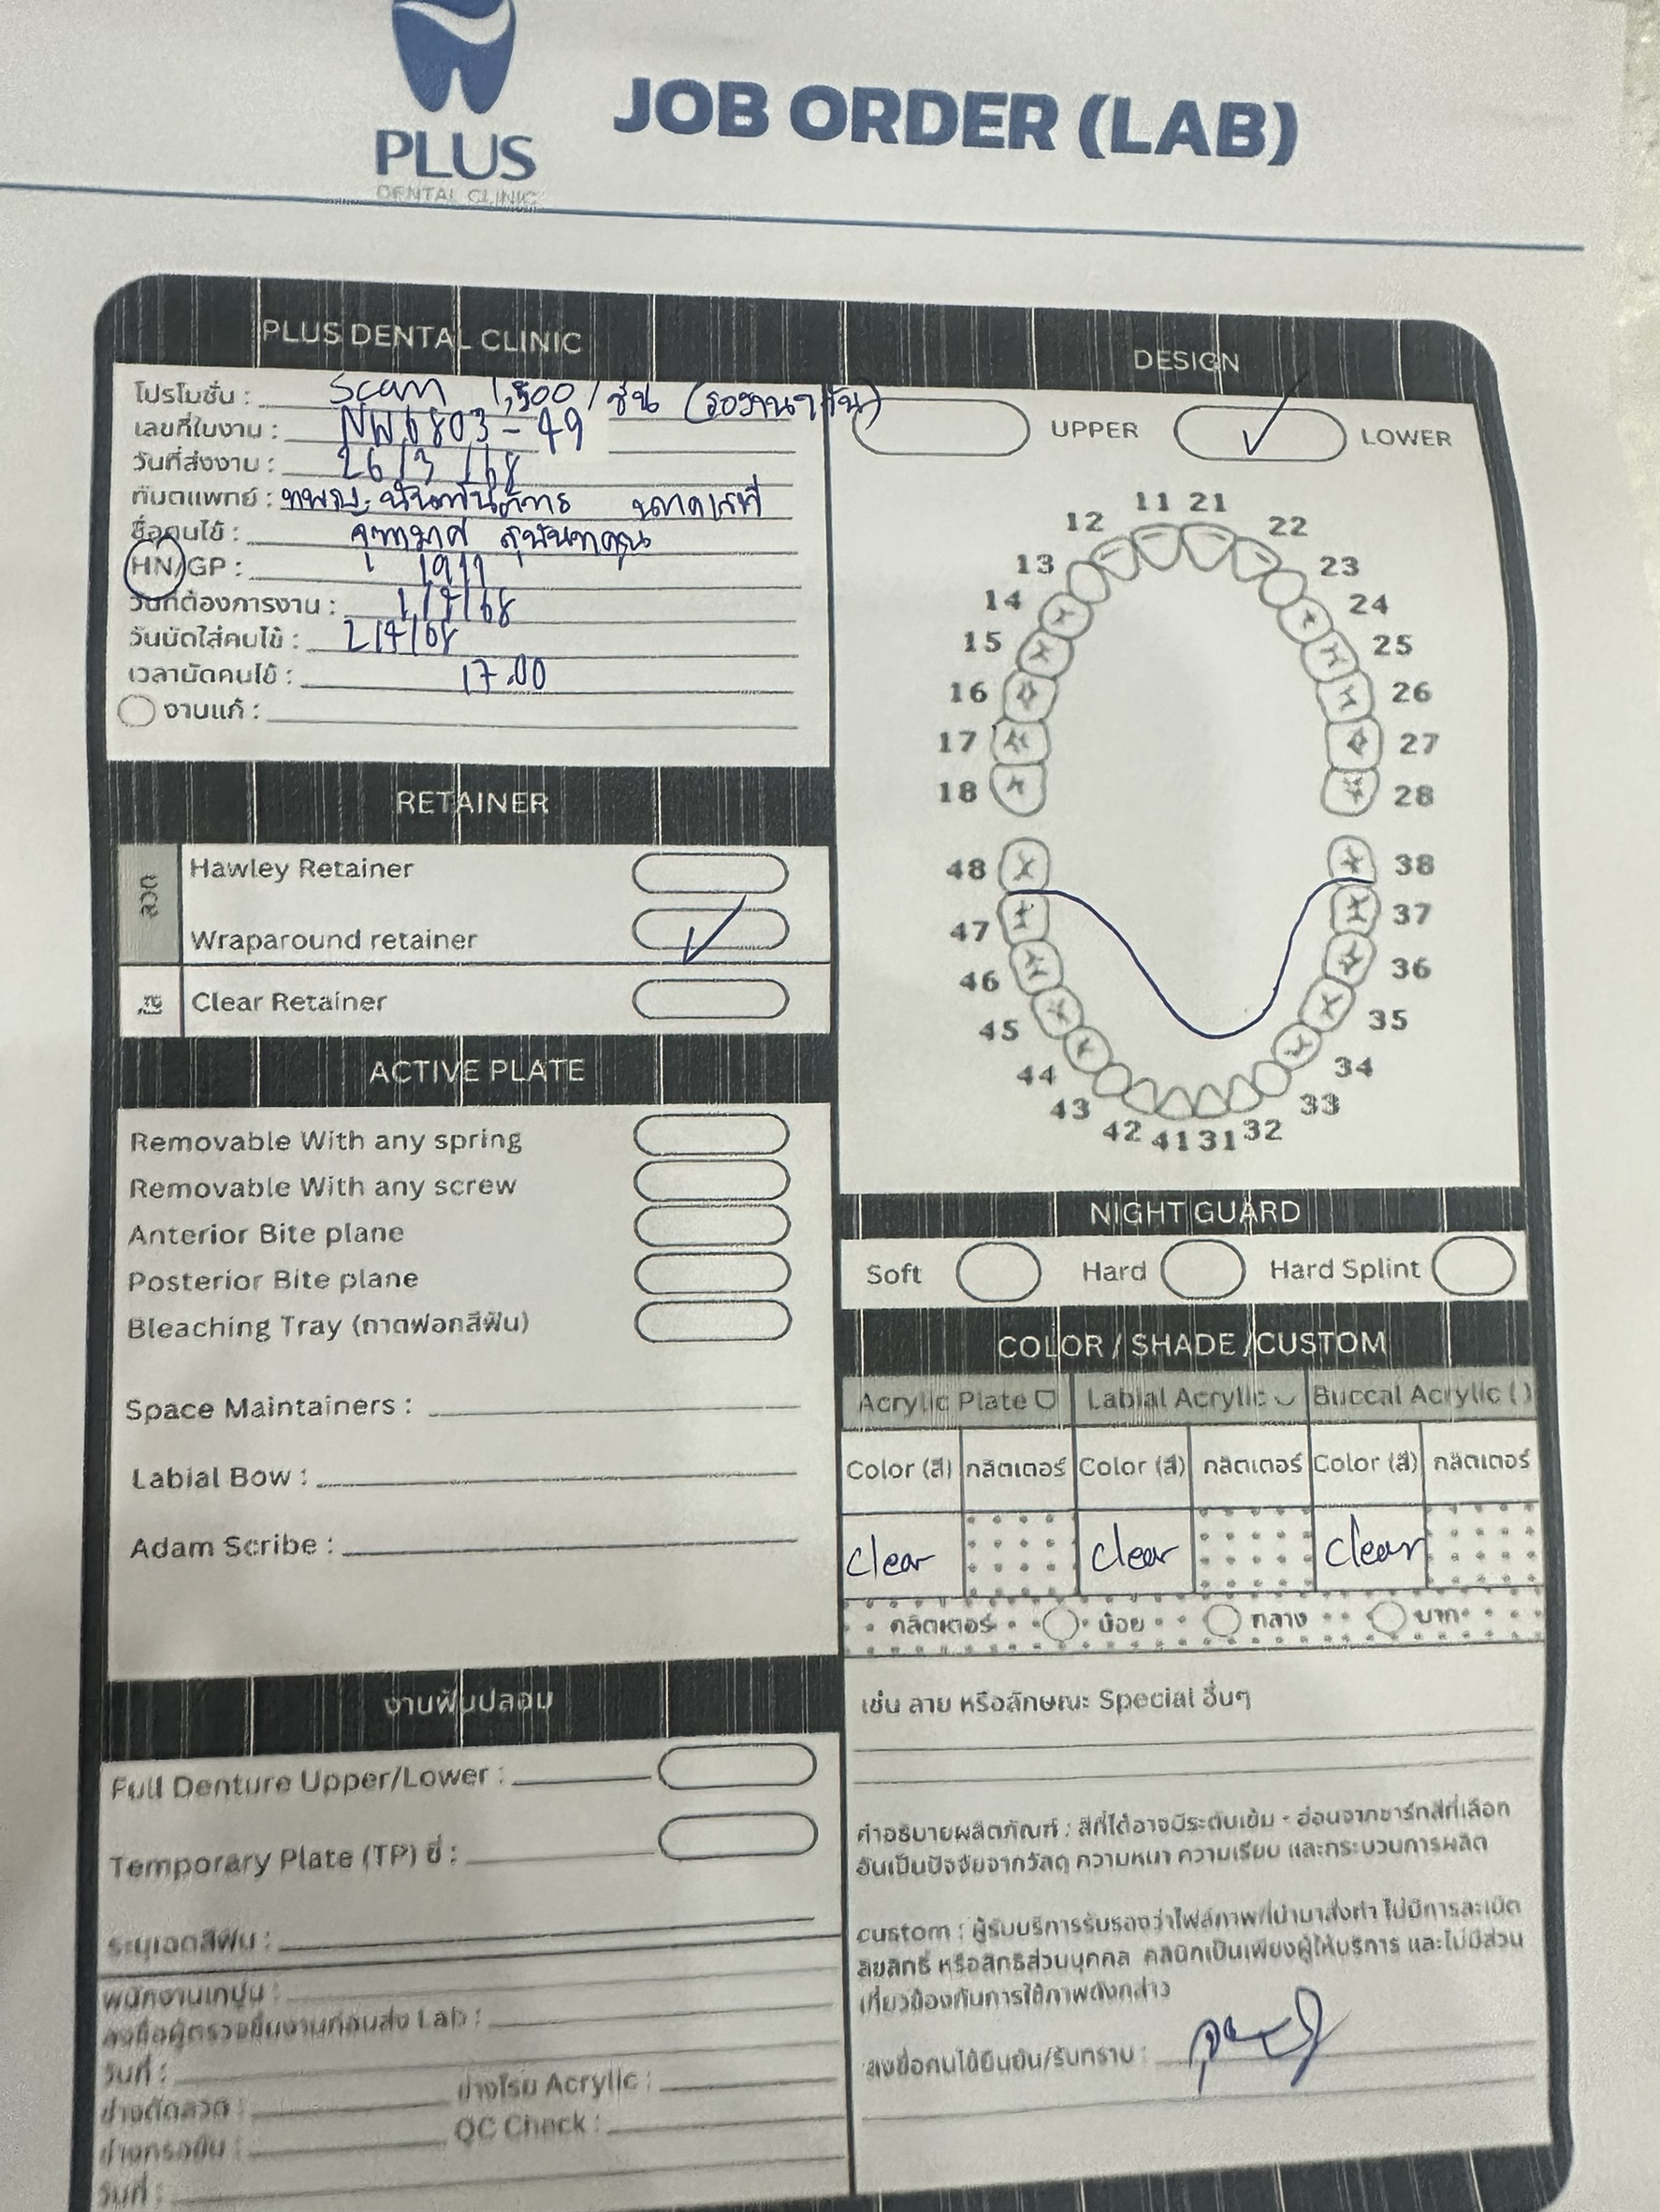 PLUS
DENTAL CLINIC
JOB ORDER (LAB)
PLUS DENTAL CLINIC
โปรโมชั่น : Scan 1,500 / ชิ้น
เลขที่ใบงาน : NW6803-49
วันที่ส่งงาน : 26/3/68
ทันตแพทย์ : ทพญ.
ชื่อคนไข้ :
HN/GP : 1911
วันที่ต้องการงาน : 1/4/68
วันนัดใส่คนไข้ : 2/4/68
เวลานัดคนไข้ : 17.00
งานแก้ :
RETAINER
ลวด
Hawley Retainer
Wraparound retainer
ใส
Clear Retainer
ACTIVE PLATE
Removable With any spring
Removable With any screw
Anterior Bite plane
Posterior Bite plane
Bleaching Tray (ถาดฟอกสีฟัน)
Space Maintainers :
Labial Bow :
Adam Scribe :
งานฟันปลอม
Full Denture Upper/Lower :
Temporary Plate (TP) ซี่ :
ระบุเฉดสีฟัน :
พนักงานเทปูน :
ลงชื่อผู้ตรวจชิ้นงานก่อนส่ง Lab :
วันที่ :
ช่างดัดลวด : ช่างโรย Acrylic :
ช่างกรอขัด : QC Check :
วันที่ :
DESIGN
UPPER LOWER
11 21
12 22
13 23
14 24
15 25
16 26
17 27
18 28
48 38
47 37
46 36
45 35
44 34
43 33
42 41 31 32
NIGHT GUARD
Soft Hard Hard Splint
COLOR / SHADE /CUSTOM
Acrylic Plate Labial Acrylic Buccal Acrylic ( )
Color (สี) กลิตเตอร์ Color (สี) กลิตเตอร์ Color (สี) กลิตเตอร์
clear clear clear
กลิตเตอร์ น้อย กลาง มาก
เช่น ลาย หรือลักษณะ Special อื่นๆ
คำอธิบายผลิตภัณฑ์ : สีที่ได้อาจมีระดับเข้ม - อ่อนจากชาร์ทสีที่เลือก
อันเป็นปัจจัยจากวัสดุ ความหนา ความเรียบ และกระบวนการผลิต
custom : ผู้รับบริการรับรองว่าไฟล์ภาพที่นำมาส่งทำ ไม่มีการละเมิด
ลิขสิทธิ์ หรือสิทธิส่วนบุคคล คลินิกเป็นเพียงผู้ให้บริการ และไม่มีส่วน
เกี่ยวข้องกับการใช้ภาพดังกล่าว
ลงชื่อคนไข้ยืนยัน/รับทราบ :